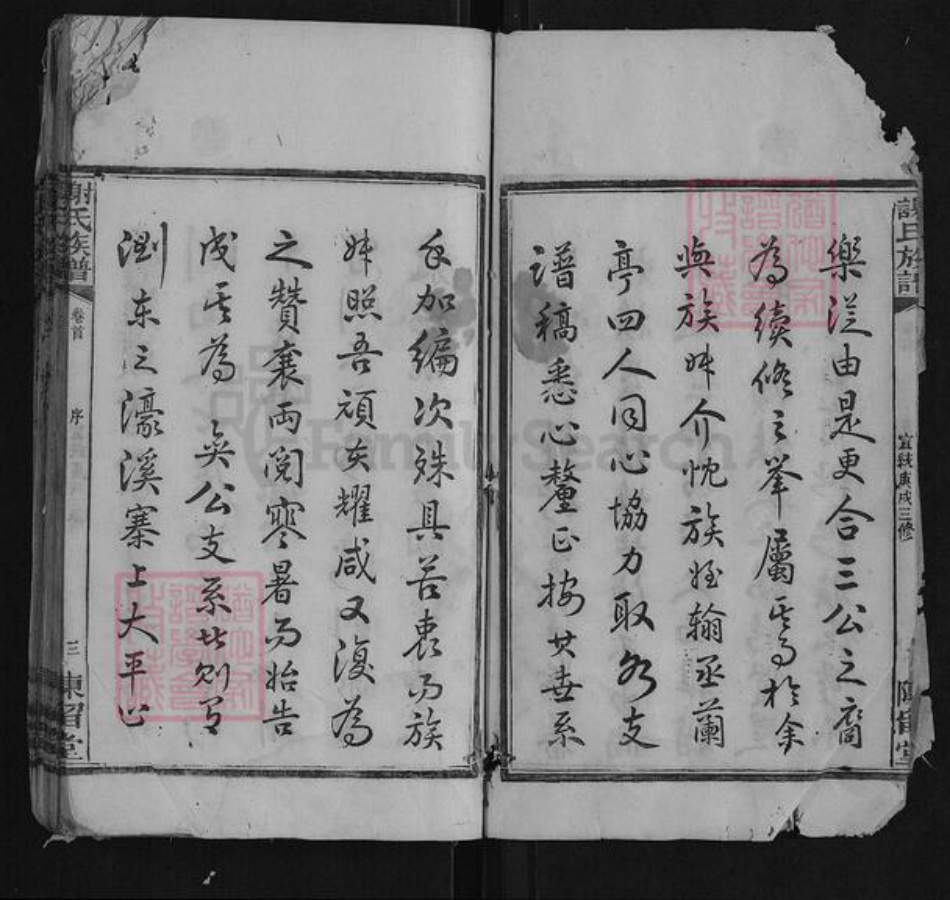 謝氏族譜
宣統庚戌三修
陳留堂
樂從由是更合三公之裔
為續修之舉屬其事於余
與族姪介忱族姪翰丞蘭
亭四人同心協力取各支
譜稿悉心釐正按其世系
加編次殊具苦衷而族
照吾頑灰耀咸又復為
之贊襄兩閱寒暑而始告
成其為 奐公支系者則有
測東之濠溪寨上大平心
謝氏族譜
卷首
序
三
陳留堂
FamilySearch